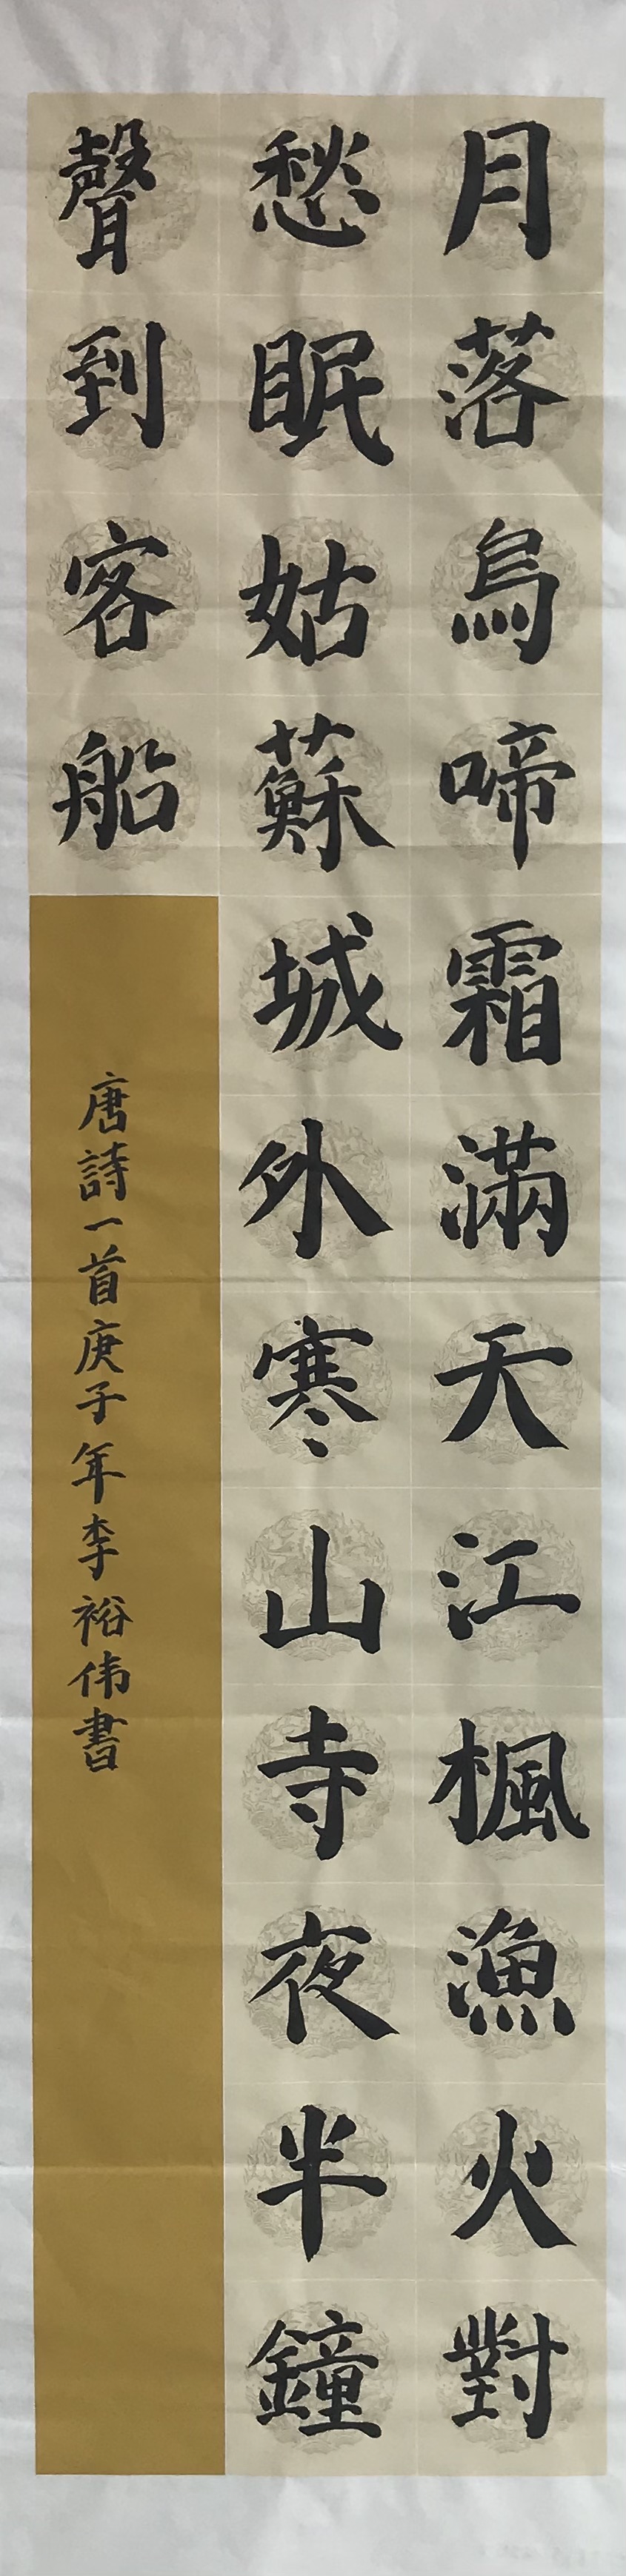 月落烏啼霜滿天江楓漁火對
愁眠姑蘇城外寒山寺夜半鐘
聲到客船
唐詩一首庚子年李裕伟書